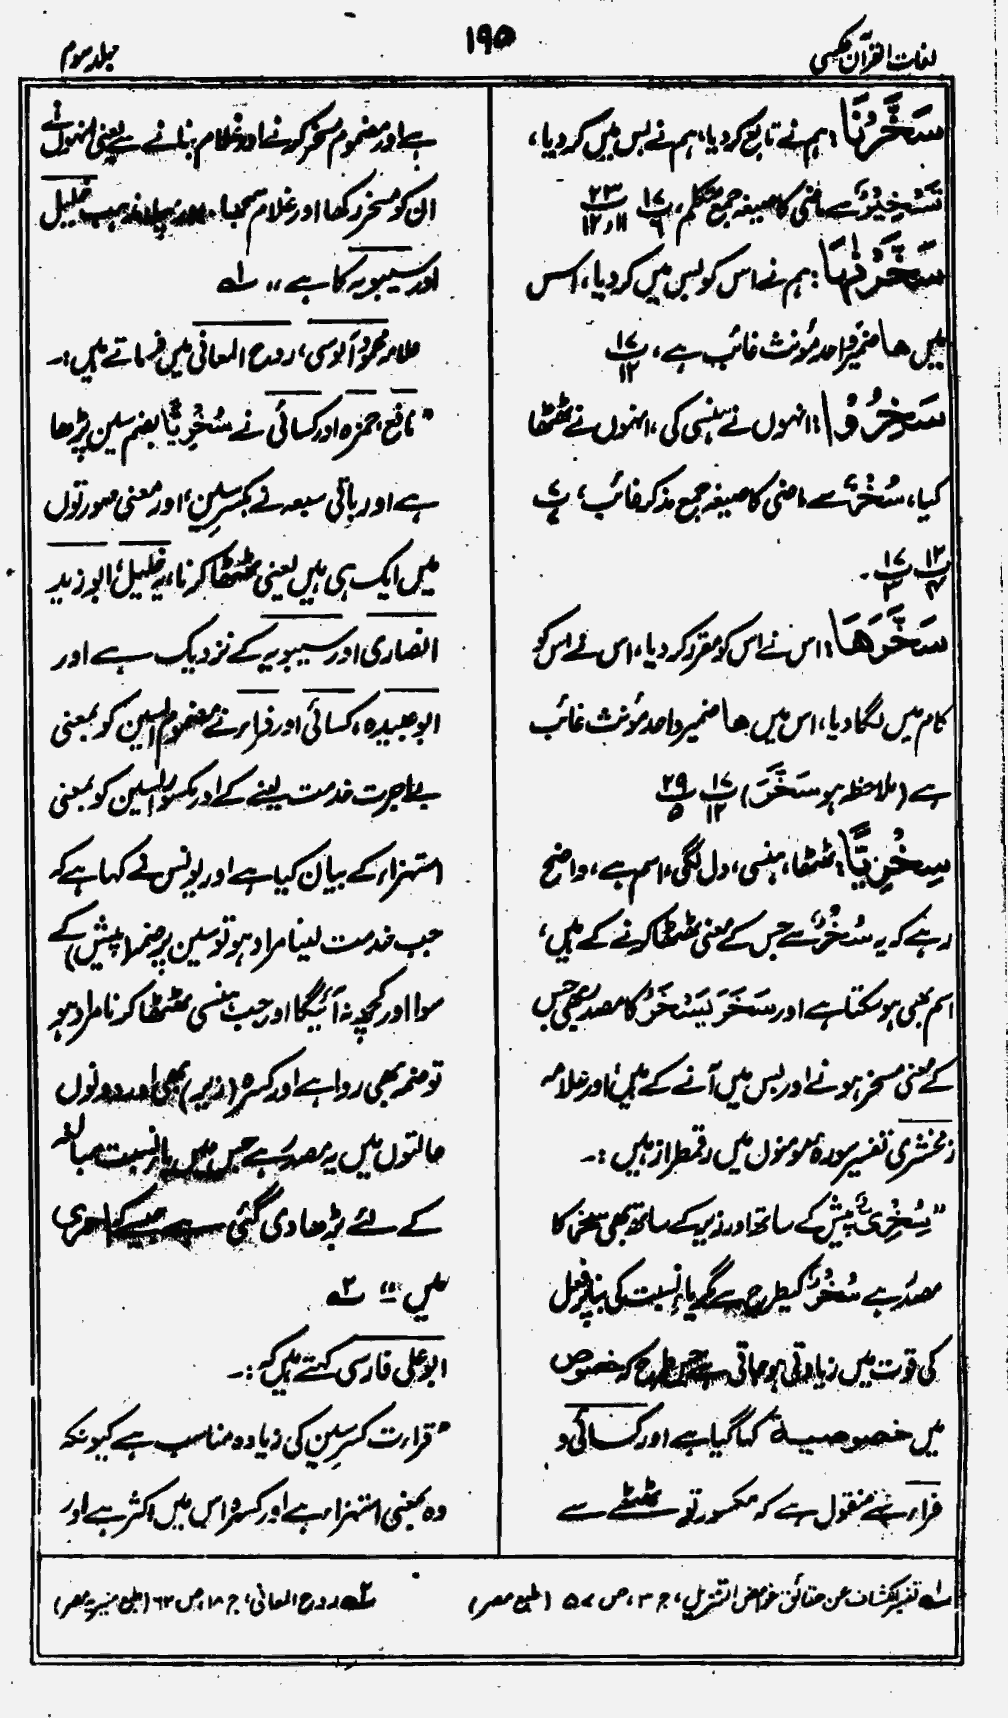 لغات القرآن مکمل
۱۹۵
جلد سوم
سَخَّرْنَا : ہم نے تابع کر دیا، ہم نے بس میں کر دیا،
تَسْخِیْرٌ سے ماضی کا صیغہ جمع متکلم، پ ۱۷/۶ پ ۲۳/۱۱ و ۱۲
سَخَّرْنٰهَا : ہم نے اس کو بس میں کر دیا، اس
میں ھا ضمیر واحد مؤنث غائب ہے، پ ۱۷/۱۲
سَخِرُوْا : انہوں نے ہنسی کی، انہوں نے ٹھٹھا
کیا، سُخْرٌ سے ماضی کا صیغہ جمع مذکر غائب، پ ۷/
پ ۱۲/۴ پ ۱۷/۳ ۔
سَخَّرَهَا : اس نے اس کو مقرر کر دیا، اس نے اس کو
کام میں لگا دیا، اس میں ھا ضمیر واحد مؤنث غائب
ہے (ملاحظہ ہو سَخَّرَ) پ ۱۷/۱۲ پ ۲۹/۵
سِخْرِیًّا : ٹھٹھا، ہنسی، دل لگی، اسم ہے، واضح
رہے کہ یہ سُخْرٌ سے جس کے معنی ٹھٹھا کرنے کے ہیں،
اسم بھی ہو سکتا ہے اور سَخَرَ یَسْخَرُ کا مصدر بھی جس
کے معنی مسخر ہونے اور بس میں آنے کے ہیں، اور علامہ
زمخشری تفسیر سورہ مومنون میں رقمطراز ہیں :۔
"سُخْرِیٌّ پیش کے ساتھ اور زیر کے ساتھ بھی سخر کا
مصدر ہے سُخْرٌ کیطرح سے گریائے نسبت کی بنا پر فعل
کی قوت میں زیادتی ہو جاتی ہے جس طرح کہ خصوص
میں خصوصیۃ کہا گیا ہے اور کسائی و
فراء سے منقول ہے کہ مکسور تو ٹھٹھے سے
ہے اور مضموم مسخر کرنے اور غلام بنانے سے یعنی انہوں نے
ان کو مسخر رکھا اور غلام سمجھا اور پہلا مذہب خلیل
اور سیبویہ کا ہے ،، لہ ۱
علامہ محمود آلوسی، روح المعانی میں فرماتے ہیں :۔
" نافع، حمزہ اور کسائی نے سُخْرِیًّا بضم سین پڑھا
ہے اور باقی سبعہ نے بکسر سین، اور معنی صورتوں
میں ایک ہی ہیں یعنی ٹھٹھا کرنا، یہ خلیل، ابو زید
انصاری اور سیبویہ کے نزدیک ہے اور
ابو عبیدہ، کسائی اور فراء نے مضموم السین کو بمعنی
بلا اجرت خدمت لینے کے اور مکسور السین کو بمعنی
استہزاء کے بیان کیا ہے اور یونس نے کہا ہے کہ
جب خدمت لینا مراد ہو تو سین پر ضمہ (پیش) کے
سوا اور کچھ نہ آئیگا اور جب ہنسی ٹھٹھا کرنا مراد ہو
تو ضمہ بھی روا ہے اور کسرہ (زیر) بھی اور دونوں
حالتوں میں یہ مصدر ہے جس میں یاء نسبت مبالغہ
کے لئے بڑھا دی گئی ہے جیسے کہ احمری
میں ،، لہ ۲
ابو علی فارسی کہتے ہیں کہ :۔
" قراءت کسر سین کی زیادہ مناسب ہے کیونکہ
وہ بمعنی استہزاء ہے اور کسرہ اس میں اکثر ہے اور
لہ ۱ تفسیر کشاف عن حقائق غوامض التنزیل، ج ۳، ص ۵۷ (طبع مصر)
لہ ۲ روح المعانی، ج ۱۸، ص ۶۲ (طبع منیریہ مصر)